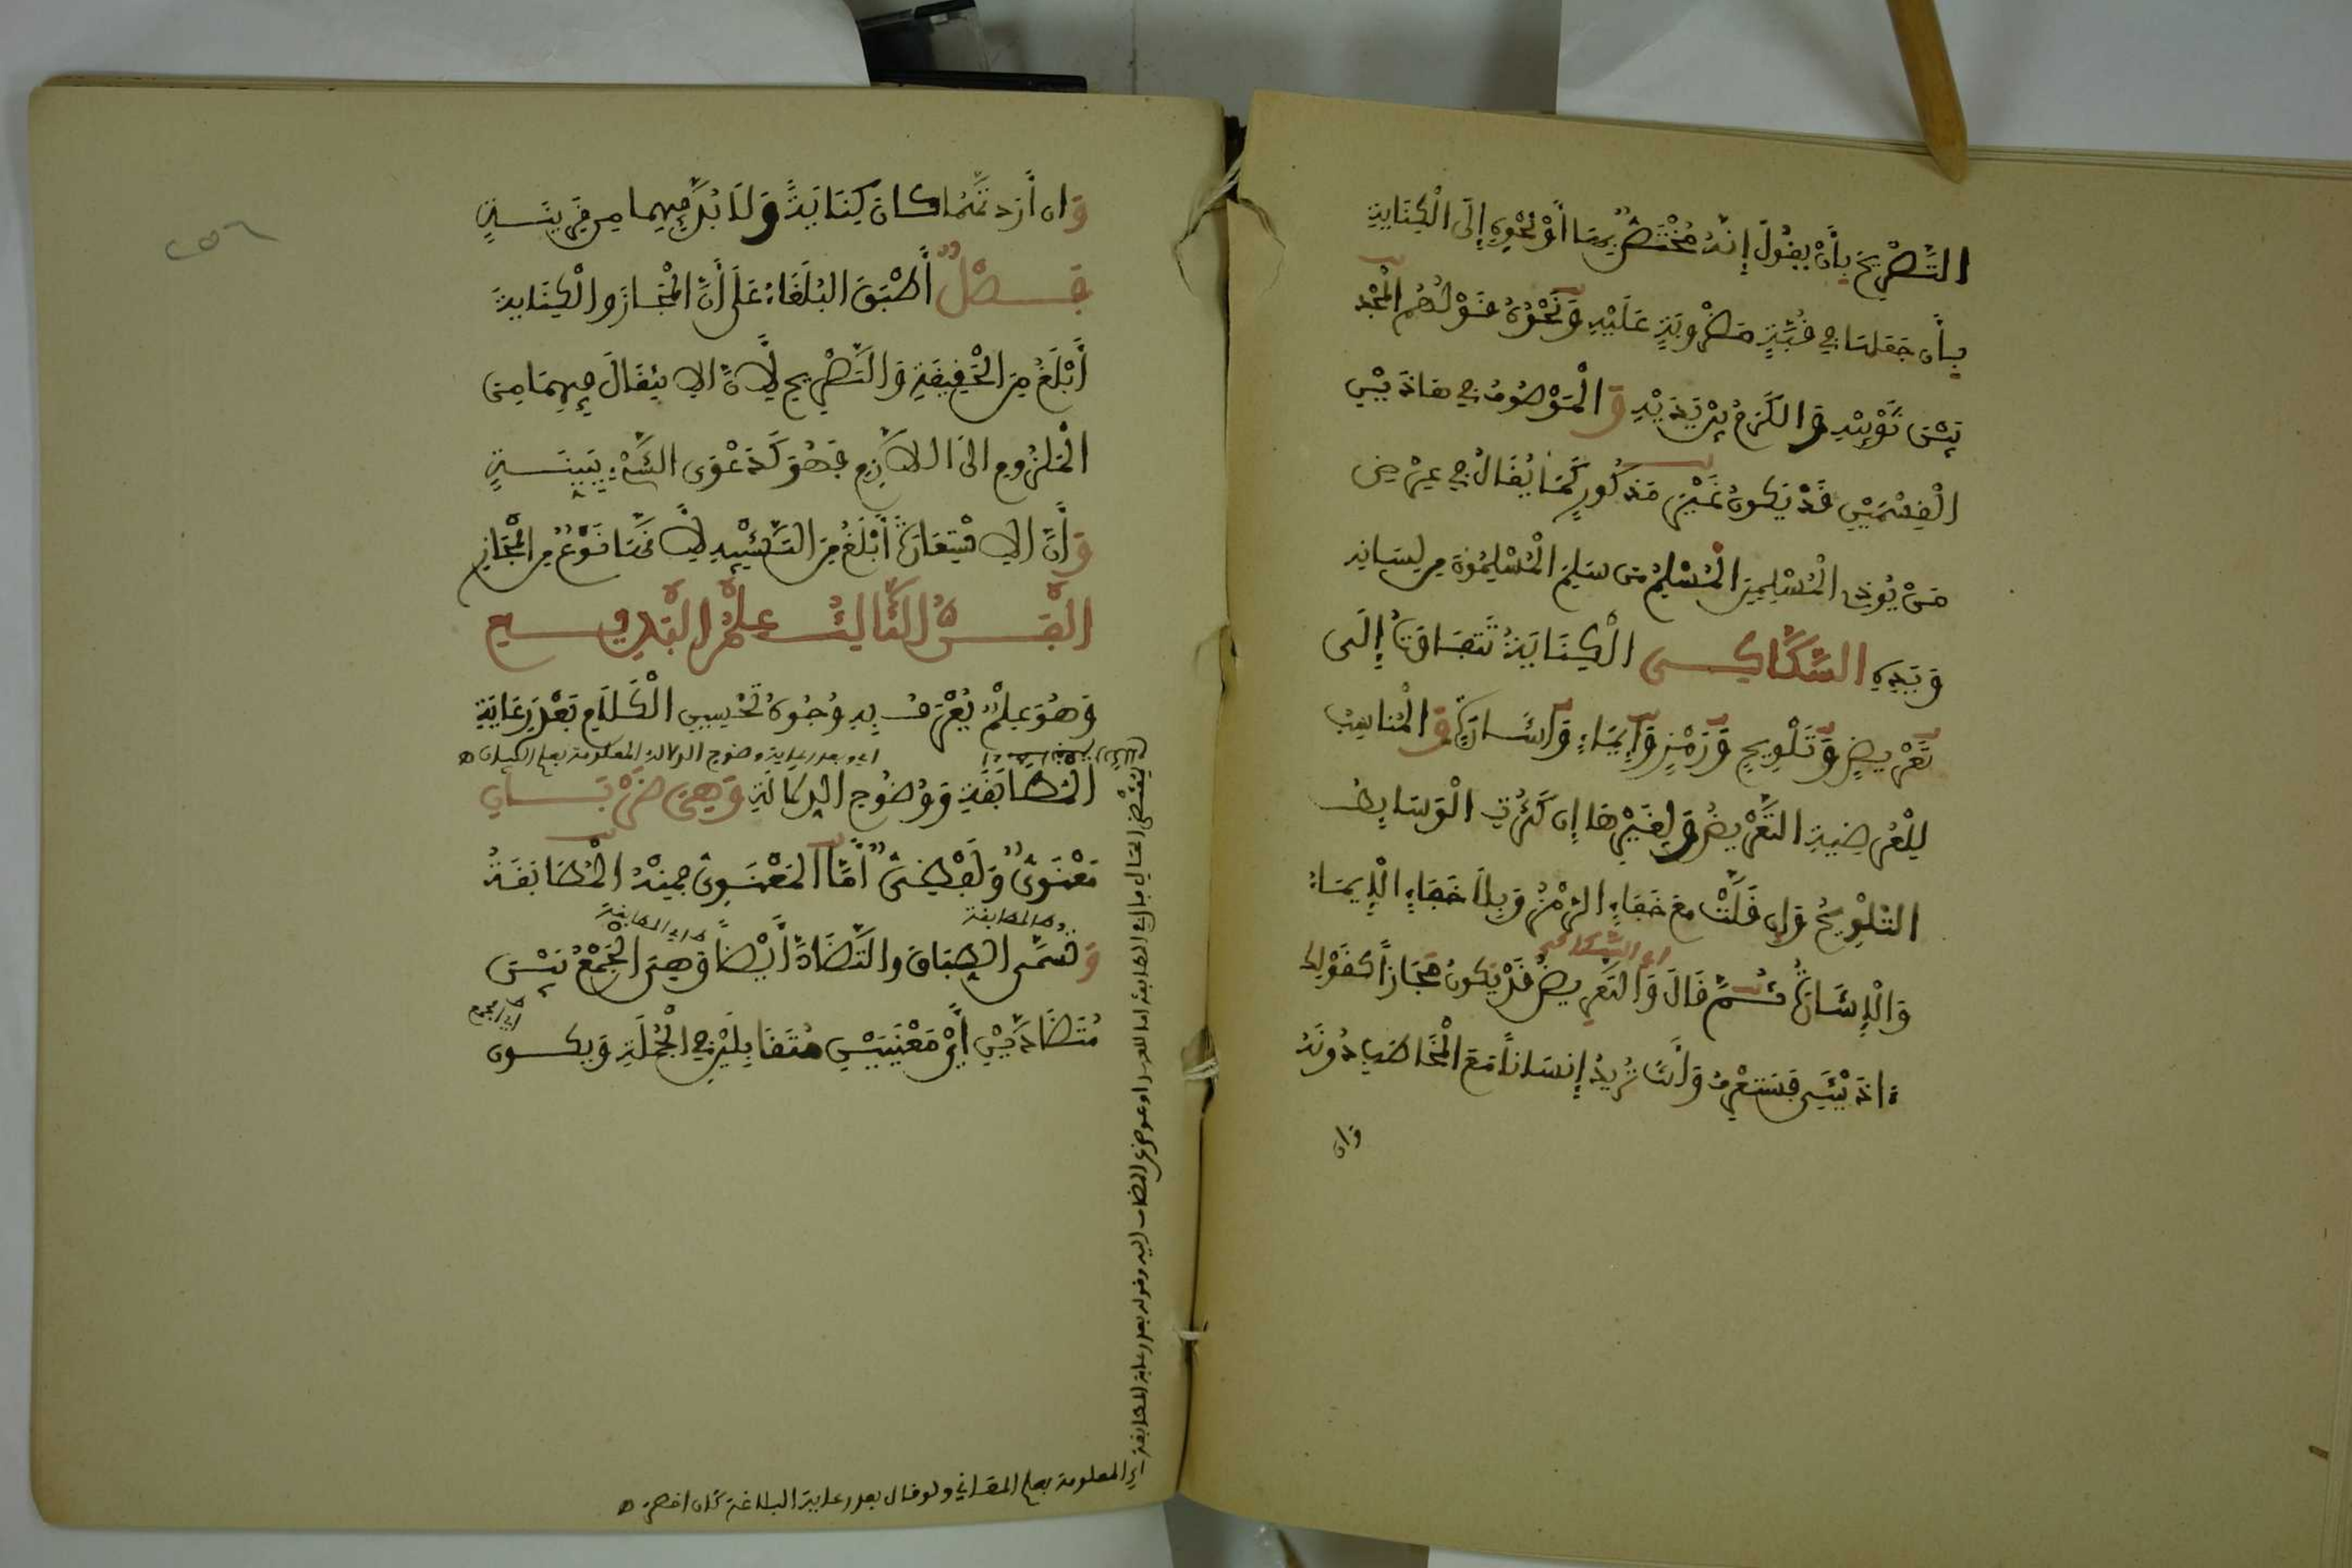 التَّصْرِيحَ بِأَنْ يَقُولَ إِنَّهُ مُخْتَصٌّ بِهَا أَوْ نَحْوِهِ إِلَى الْكِنَايَةِ
بِأَن جَعَلَهَا فِي قُبَّةٍ مَضْرُوبَةٍ عَلَيْهِ وَنَحْوُهُ قَوْلُهُم الْمَجْدُ
بَيْنَ ثَوْبَيْهِ وَالْكَرَمُ بَيْنَ بُرْدَيْهِ وَالْمَوْصُوفُ فِي هَاذَيْنِ
الْقِسْمَيْنِ قَدْ يَكُونُ غَيْرَ مَذْكُورٍ كَمَا يُقَالُ فِي عِرْضِ
مَنْ يُؤْذِي الْمُسْلِمِينَ الْمُسْلِمُ مَن سَلِمَ الْمُسْلِمُونَ مِن لِسَانِهِ
وَيَدِهِ السَّكَّاكِي الْكِنَايَةُ تَتَفَاوَتُ إِلَى
تَعْرِيضٍ وَتَلْوِيحٍ وَرَمْزٍ وَإِيمَاءٍ وَإِشَارَةٍ وَالْمُنَاسِبُ
لِلْعُرْضِيَّةِ التَّعْرِيضُ وَلِغَيْرِهَا إِن كَثُرَتِ الْوَسَايِطُ
التَّلْوِيحُ وَإِن قَلَّتْ مَعَ خَفَاءٍ الرَّمْزُ وَبِلَا خَفَاءٍ الْإِيمَاءُ
اي السكاكي
وَالْإِشَارَةُ ثُمَّ قَالَ وَالتَّعْرِيضُ قَدْ يَكُونُ مَجَازًا كَقَوْلِكَ
ءاذَيْتَنِي فَسَتَعْرِفُ وَأَنْتَ تُرِيدُ إِنسَانًا مَعَ الْمُخَاطَبِ دُونَهُ
وان
وَإن أَرَدتَّهُمَا كَانَ كِنَايَةً وَلَا بُدَّ فِيهِمَا مِن قَرِينَةٍ
فَصْلٌ أَطْبَقَ الْبُلَغَاءُ عَلَى أَنَّ الْمَجَازَ وَالْكِنَايَةَ
أَبْلَغُ مِنَ الْحَقِيقَةِ وَالتَّصْرِيحِ لِأَنَّ الِانْتِقَالَ فِيهِمَا مِنَ
الْمَلْزُومِ إلَى اللَّازِمِ فَهُوَ كَدَعْوَى الشَّيْءِ بِبَيِّنَةٍ
وَأَنَّ الِاسْتِعَارَةَ أَبْلَغُ مِنَ التَّشْبِيهِ لِأَنَّهَا نَوْعٌ مِنَ الْمَجَازِ
الْفَنُّ الثَّالِثُ عِلْمُ الْبَدِيعِ
وَهُوَ عِلْمٌ يُعْرَفُ بِهِ وُجُوهُ تَحْسِينِ الْكَلَامِ بَعْدَ رِعَايَةِ
اي وبعد رعاية وضوح الدلالة المعلومة بعلم البيان ه
الْمُطَابَقَةِ وَوُضُوحِ الدِّلَالَةِ وَهِيَ ضَرْبَانِ
مَعْنَوِيٌّ وَلَفْظِيٌّ أَمَّا الْمَعْنَوِيُّ فَمِنْهُ الْمُطَابَقَةُ
اي المطابقة اي المطابقة
وَتُسَمَّى الطِّبَاقَ وَالتَّضَادَّ أَيْضًا وَهِيَ الْجَمْعُ بَيْنَ
اي الجمع
مُتَضَادَّيْنِ أَيْ مَعْنَيَيْنِ مُتَقَابِلَيْنِ فِي الْجُمْلَةِ وَيَكُونُ
اي المعلومة بعلم المعاني ولو قال بعد رعاية البلاغة كان اخصر ه